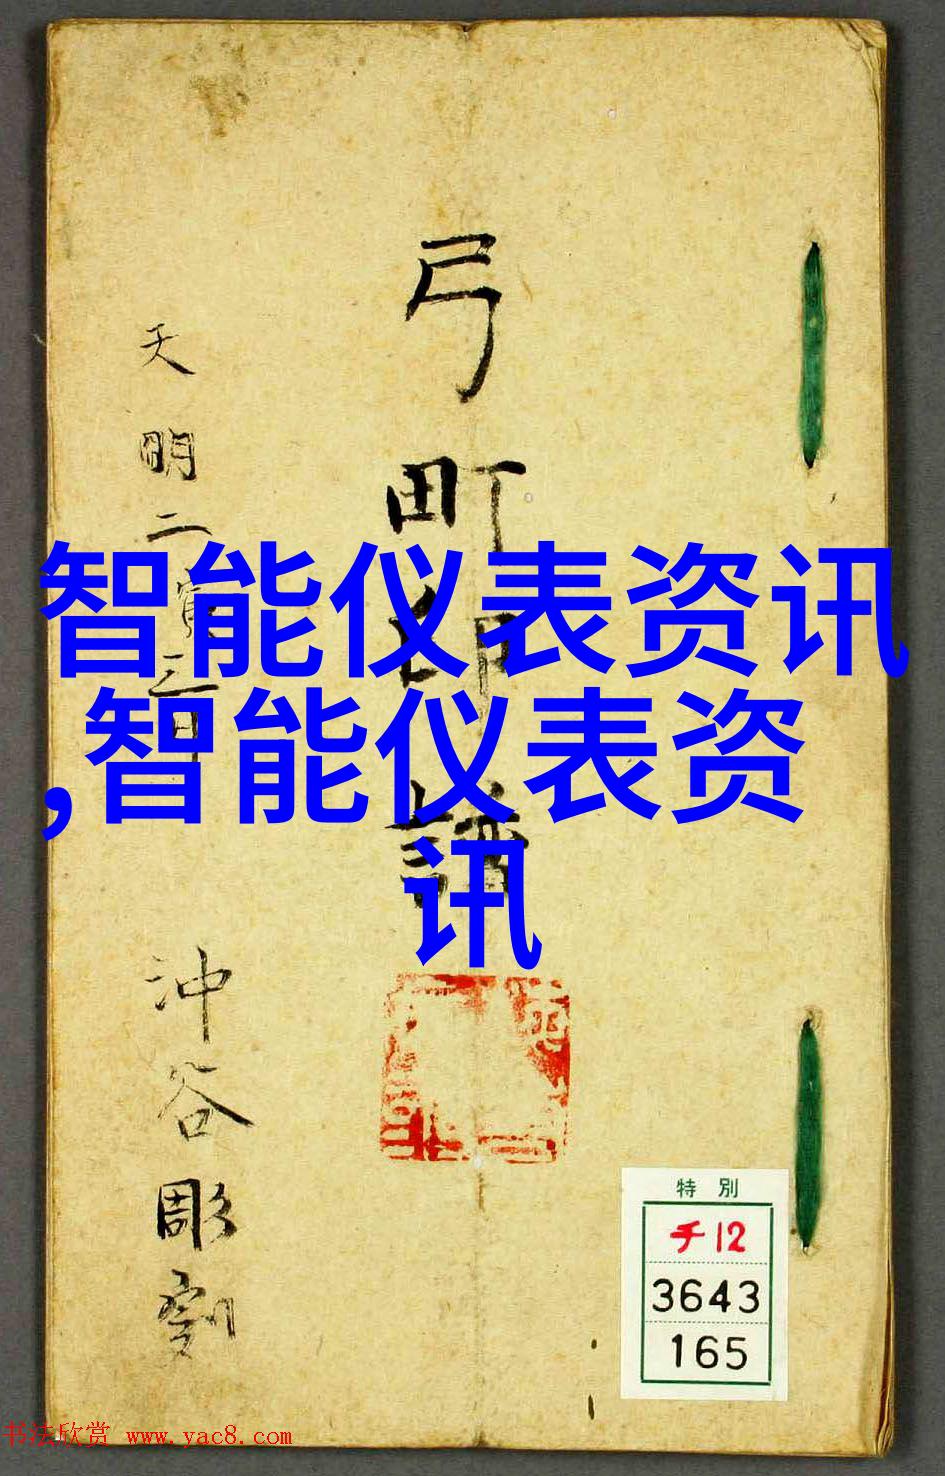 弓町印譜
天明二寅三月
沖谷彫刻
智能仪表资讯
,智能仪表资
讯
特別
チ12
3643
165
书法欣赏 www.yac8.com